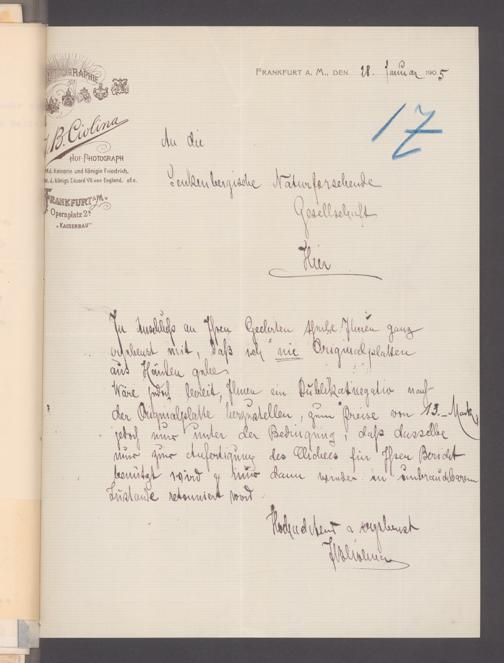 PHOTOGRAPHIE
J. B. Ciolina
HOF-PHOTOGRAPH
I. Md. Kaiserin und Königin Friedrich,
Sr. Md. Königs Eduard VII von England. etc.
FRANKFURT a/M.
Opernplatz 2
"KAISERBAU"
FRANKFURT A. M., DEN 28. Januar 1905
17
An die
Senkenbergische Naturforschende
Gesellschaft
Hier
In Anschluß an Ihren Geehrten theile Ihnen ganz
ergebenst mit, daß ich nie Originalplatten
aus Händen gebe.
Wäre jedoch bereit, Ihnen ein Dublikatnegativ nach
der Originalplatte herzustellen, zum Preise von 13.- Mark,
jedoch nur unter der Bedingung, daß dasselbe
nur zur Anfertigung des Clichees für Ihren Bericht
benützt wird & mir dann wieder in unbrauchbarem
Zustande retourniert wird.
Hochachtend & ergebenst
JBCiolina